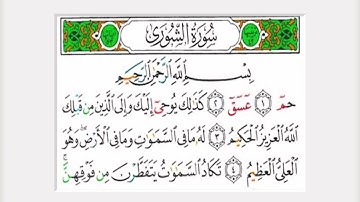 سُورَةُ الشُّورَىٰ
بِسْمِ اللَّهِ الرَّحْمَٰنِ الرَّحِيمِ
حمٓ ﴿١﴾ عٓسٓقٓ ﴿٢﴾ كَذَٰلِكَ يُوحِىٓ إِلَيْكَ وَإِلَى ٱلَّذِينَ مِن قَبْلِكَ
ٱللَّهُ ٱلْعَزِيزُ ٱلْحَكِيمُ ﴿٣﴾ لَهُۥ مَا فِى ٱلسَّمَٰوَٰتِ وَمَا فِى ٱلْأَرْضِ ۖ وَهُوَ
ٱلْعَلِىُّ ٱلْعَظِيمُ ﴿٤﴾ تَكَادُ ٱلسَّمَٰوَٰتُ يَتَفَطَّرْنَ مِن فَوْقِهِنَّ ۚ